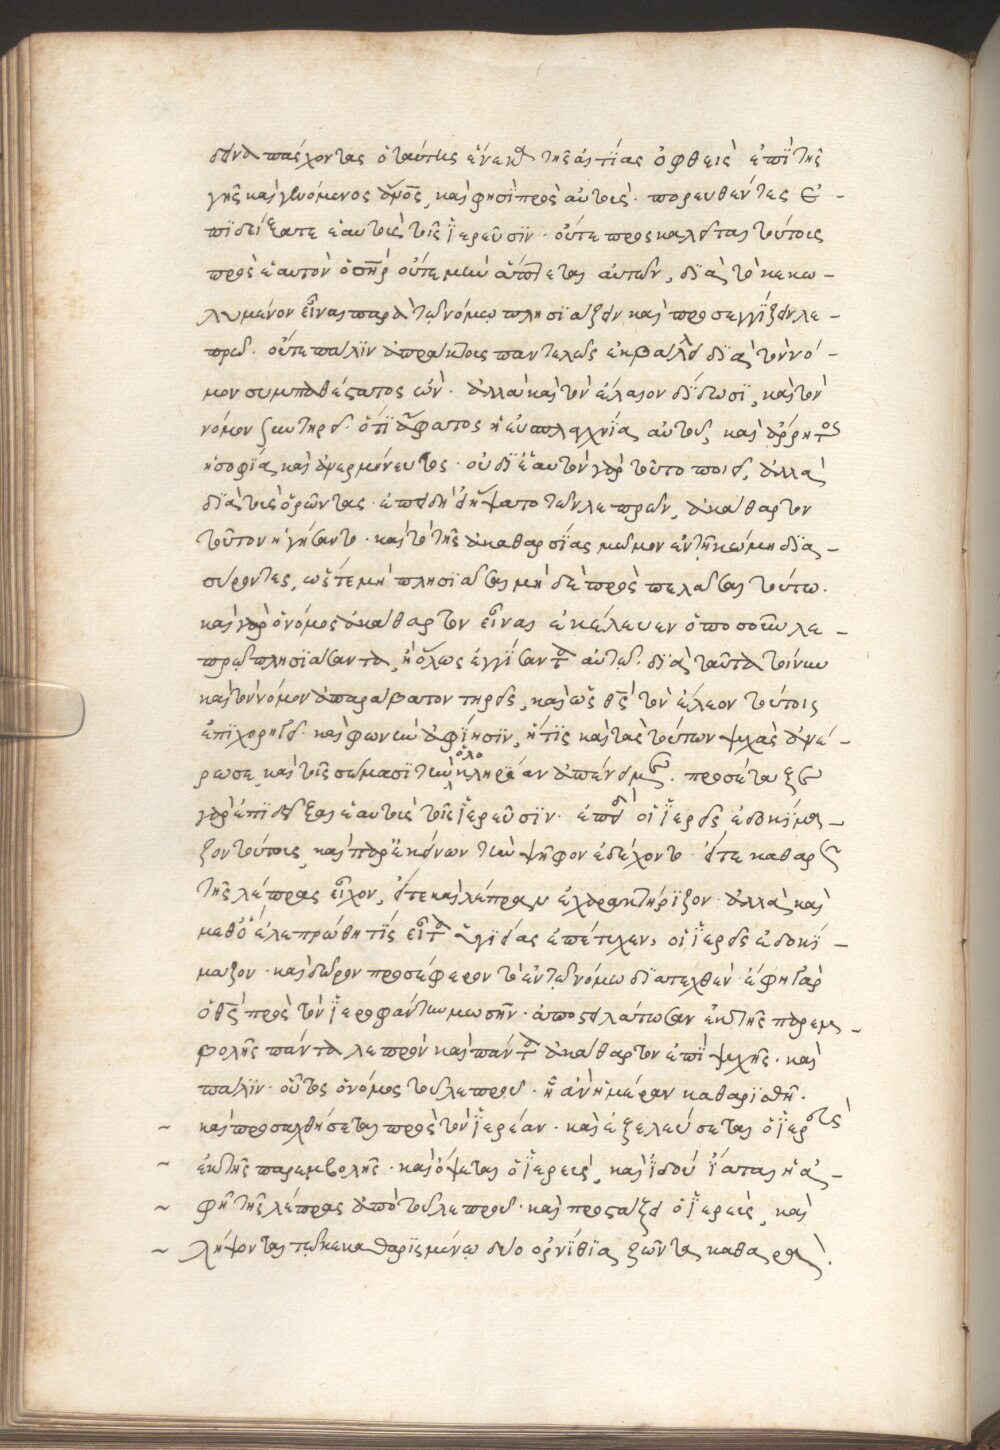 δεινὰ πάσχοντας ὁ ταύτης ἕνεκα τῆς αἰτίας ὀφθεὶς ἐπὶ τῆς
γῆς καὶ γενόμενος ἄνος, καὶ φησὶ πρὸς αὐτούς· πορευθέντες ἐ-
πιδείξατε ἑαυτοὺς τοῖς ἱερεῦσιν· οὔτε προσκαλεῖται τούτοις
πρὸς ἑαυτὸν ὁ σπηρ οὔτε μὴν ἅπτεται αὐτῶν, διὰ τὸ κεκω-
λυμένον εἶναι παρὰ τῷ νόμῳ πλησιάζειν καὶ προσεγγίζειν λε-
πρῷ· οὔτε πάλιν ἀπράκτους παντελῶς ἐκβάλλει διὰ τὸν νό-
μον συμπαθέστατος ὤν· ἀλλὰ καὶ τὸν ἔλεον δίδωσι, καὶ τὸν
νόμον τηρεῖ· ὅτι ἄφατος ἡ εὐσπλαγχνία αὐτοῦ, καὶ ἄρρητος
ἡ σοφία καὶ ἀνερμήνευτος· οὐ δι' ἑαυτὸν γὰρ τοῦτο ποιεῖ, ἀλλὰ
διὰ τοὺς ὁρῶντας· ἐπειδὴ εἰ ἥψατο τῶν λεπρῶν, ἀκάθαρτον
τοῦτον ἡγήσαντο· καὶ τὸ τῆς ἀκαθαρσίας μῶμον ἐν τῇ κώμῃ δια-
σύροντες, ὥστε μὴ πλησιάσαι μὴ δὲ προσπελάσαι τούτῳ.
καὶ γὰρ ὁ νόμος ἀκάθαρτον εἶναι ἐκέλευεν ὁποσοῦν λε-
πρῷ πλησιάσαντα, ἢ ὅλως ἐγγίσαντα αὐτῷ· διὰ ταῦτα τοίνυν
καὶ τὸν νόμον ἀπαράβατον τηρεῖ, καὶ ὡς θς τὸν ἔλεον τούτοις
ἐπιχορηγεῖ· καὶ φωνὴν ἀφίησιν, ἥτις καὶ τὰς τούτων ψυχὰς ἀνέ-
ρωσε, καὶ τοῖς σώμασι τὴν ὁλοκληρίαν ἀπένειμε. προσέταξε
γὰρ ἐπιδεῖξαι ἑαυτοὺς τοῖς ἱερεῦσιν· ἐπειδὴ οἱ ἱερεῖς ἐδοκίμα-
ζον τούτους, καὶ παρ' ἐκείνων τὴν ψῆφον ἐδέχοντο· εἴτε καθαρῶς
τῆς λέπρας εἶχον, εἴτε καὶ λέπραν ἐχαρακτήριζον· ἀλλὰ καὶ
μεθ' ὃ ἐλεπρώθη τίς εἶτα ὑγείας ἐπέτυχεν, οἱ ἱερεῖς ἐδοκί-
μαζον· καὶ δῶρον προσέφερον τὸ ἐν τῷ νόμῳ διαταχθέν· ἔφη γὰρ
ὁ θς πρὸς τὸν ἱεροφάντην μωσῆν· ἀποστειλάτωσαν ἐκ τῆς παρεμ-
βολῆς πάντα λεπρὸν καὶ πάντα ἀκάθαρτον ἐπὶ ψυχῆς· καὶ
πάλιν· οὗτος ὁ νόμος τοῦ λεπροῦ· ᾗ ἂν ἡμέραν καθαρισθῇ·
καὶ προσαχθήσεται πρὸς τὸν ἱερέαν· καὶ ἐξελεύσεται ὁ ἱερεὺς
ἐκ τῆς παρεμβολῆς· καὶ ὄψεται ὁ ἱερεύς, καὶ ἰδού ἴαται ἡ ἁ-
φὴ τῆς λέπρας ἀπὸ τοῦ λεπροῦ· καὶ προστάξει ὁ ἱερεύς, καὶ
λήψονται τῷ κεκαθαρισμένῳ δύο ὀρνίθια ζῶντα καθαρά.